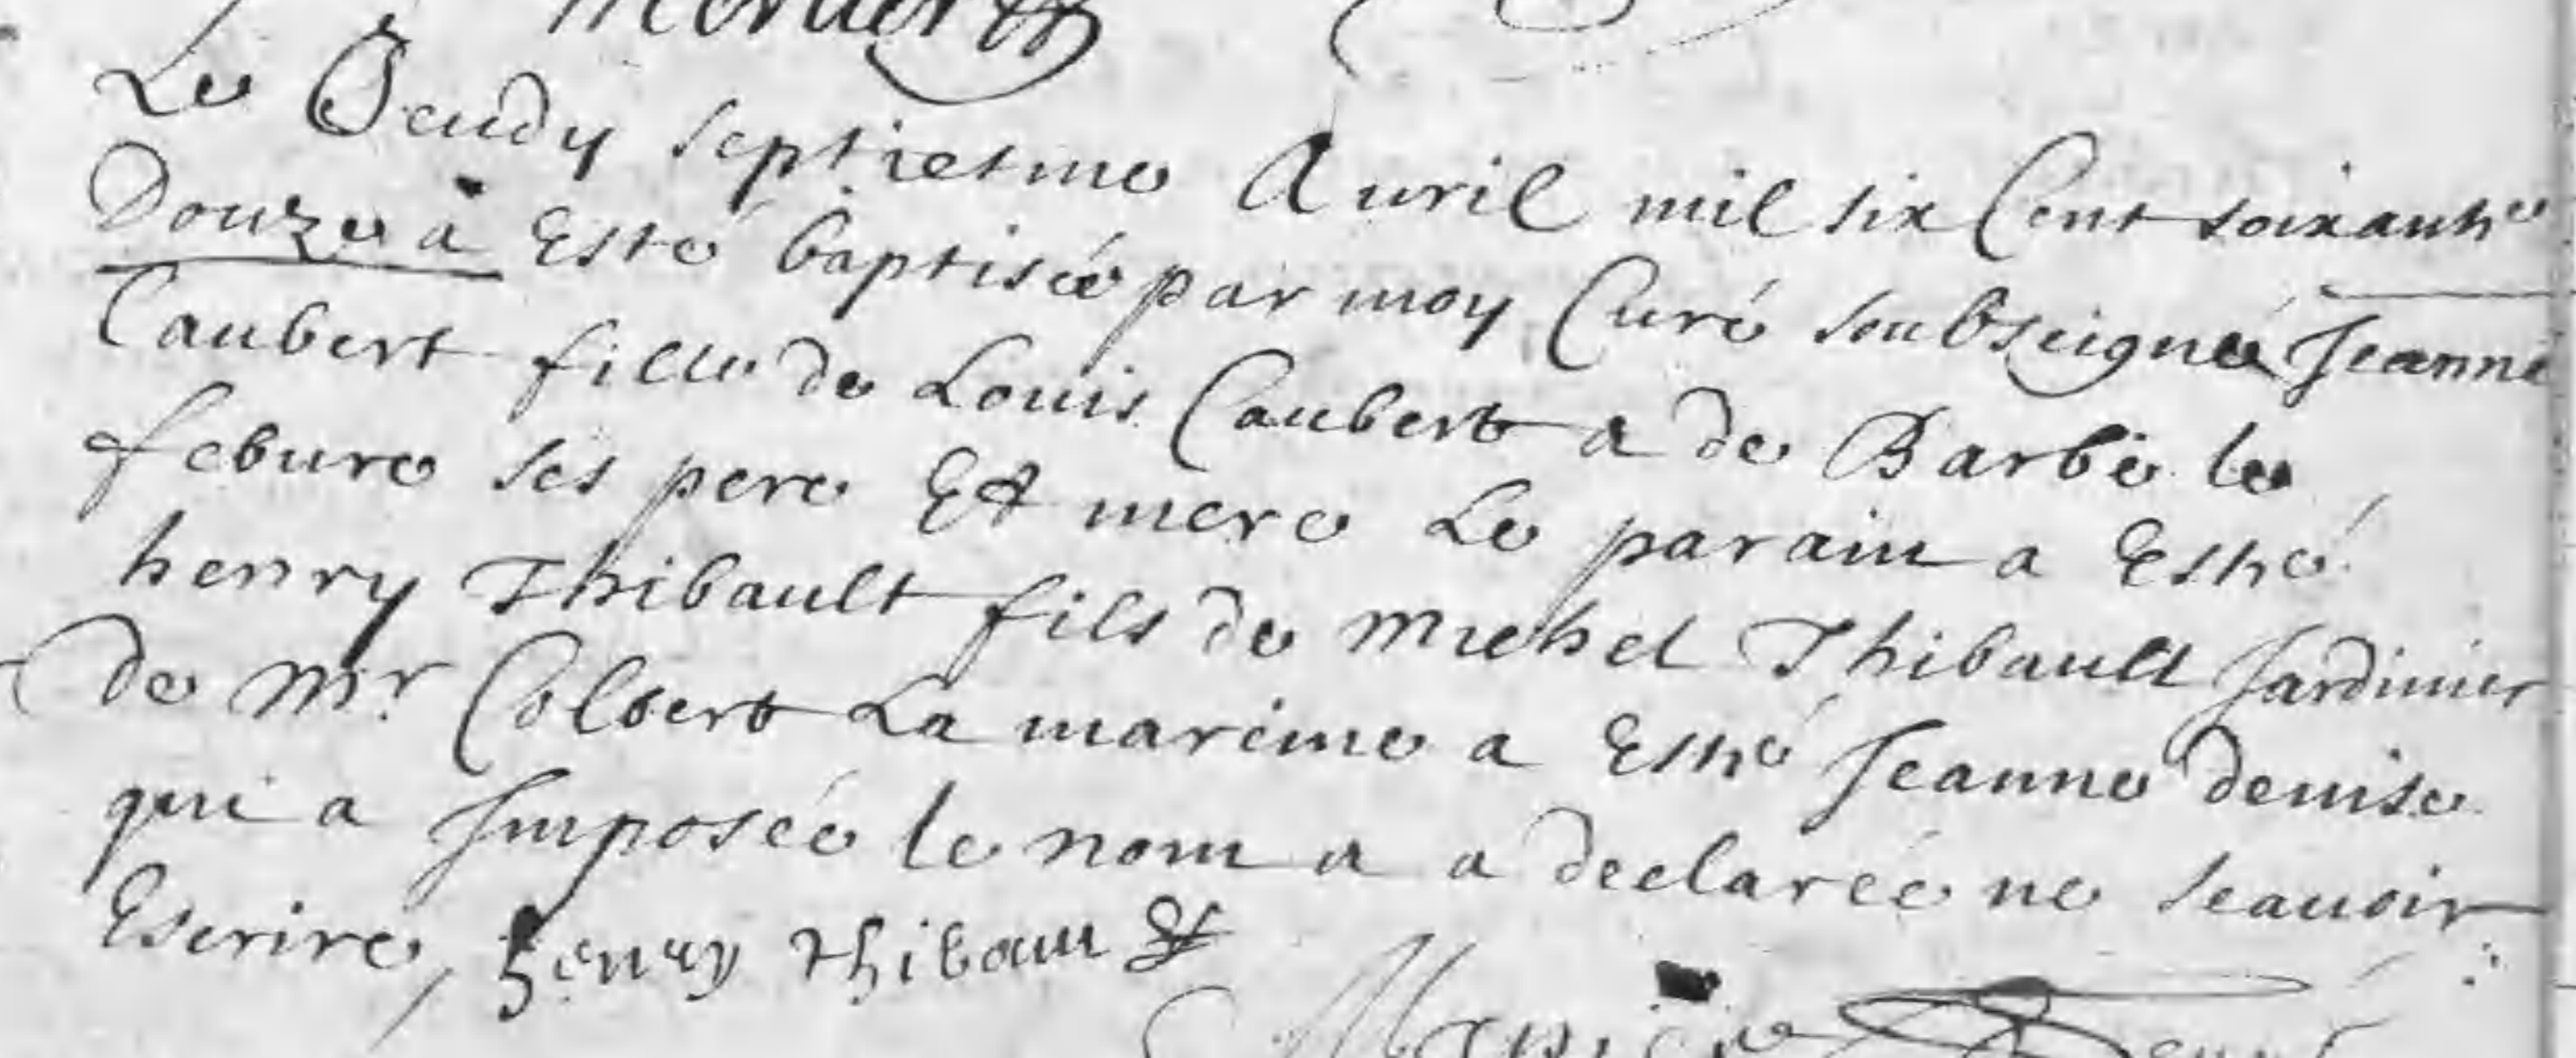 Le Jeudy septiesme Auril mil six Cent soixante
Douze a Esté baptisée par moy Curé soubseigné Jeanne
Caubert fille de Louis Caubert & de Barbe le
febure ses pere Et mere Le parain a Esté
henry Thibault fils de Michel Thibault Jardinier
de Mr Colbert La mareine a Esté Jeanne denise
qui a Imposée le nom & a declarée ne scauoir
Escrire,
henry thibau